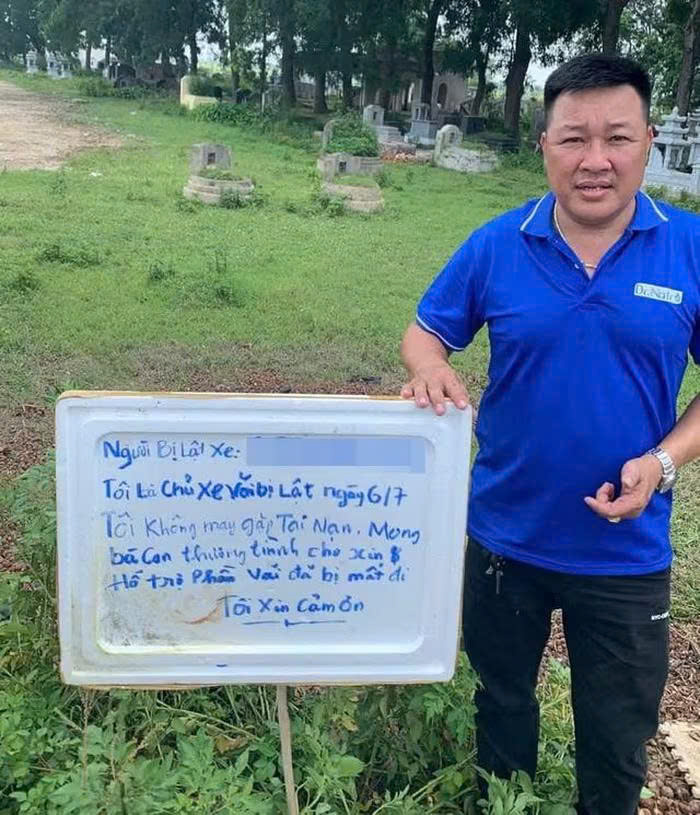 Người Bị Lật Xe:
Tôi Là Chủ Xe Vải bị Lật ngày 6/7
Tôi Không may gặp Tai Nạn. Mong
bà Con thương tình cho xin
Hỗ trợ Phần Vải đã bị mất đi
Tôi Xin Cảm ơn